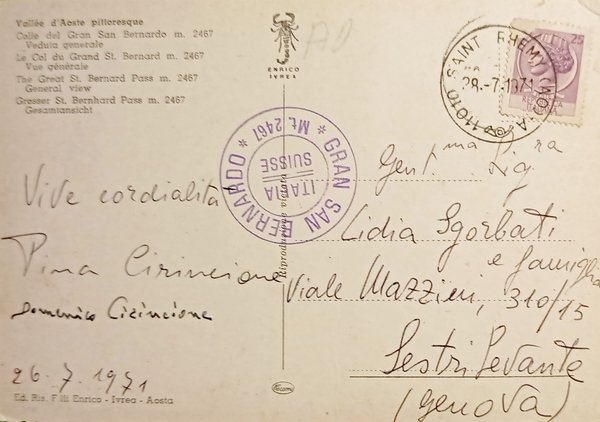 Vallée d'Aoste pittoresque
Colle del Gran San Bernardo m. 2467
Veduta generale
Le Col du Grand St. Bernard m. 2467
Vue générale
The Great St. Bernard Pass m. 2467
General view
Grosser St. Bernhard Pass m. 2467
Gesamtansicht
ENRICO
IVREA
11010 SAINT RHEMY (AO)
28.-7.1971
25
* GRAN SAN BERNARDO *
Mt. 2467
ITALIA
SUISSE
Riproduzione vietata
Vive cordialità
Pina Cirincione
Domenico Cirincione
26-7-1971
Gent ma Sig ra
Lidia Sgorbati
e famiglia
Viale Mazzini, 310/15
Sestri Levante
(Genova)
Ed. Ris. F.lli Enrico - Ivrea - Aosta